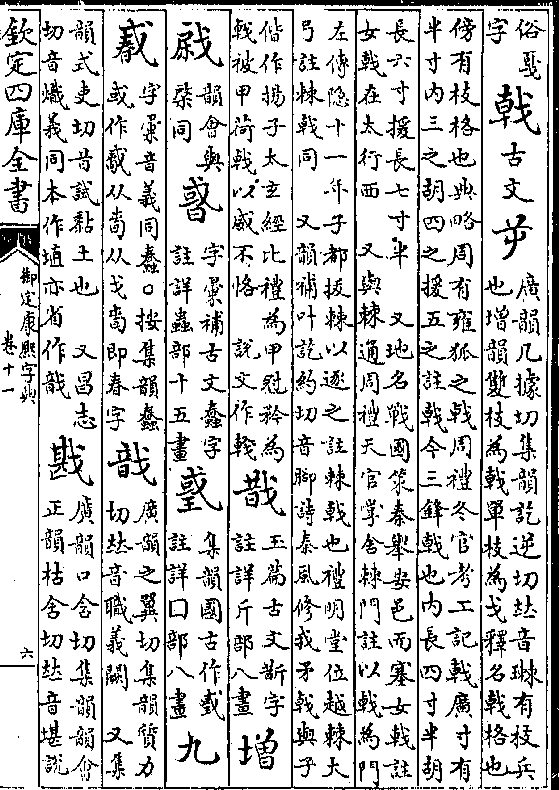 俗戛
字
戟古文
廣韻几據切集韻訖逆切𠀤音棘有枝兵
也增韻雙枝為戟單枝為戈釋名戟格也
傍有枝格也典略周有雍狐之戟周禮冬官考工記戟廣寸有
半寸內三之胡四之援五之註戟今三鋒戟也內長四寸半胡
長六寸援長七寸半 又地名戰國策秦舉安邑而塞女戟註
女戟在太行西 又與棘通周禮天官掌舍棘門註以戟為門
左傳隱十一年子都拔棘以逐之註棘戟也禮明堂位越棘大
弓註棘戟同 又韻補叶訖約切音脚詩秦風修我矛戟與子
偕作揚子太玄經比禮為甲冠矜為
戟被甲荷戟以威不恪 說文作
玉篇古文斯字
註詳斤部八畫
增
韻會與
同
字彙補古文蠢字
註詳蟲部十五畫
集韻國古作
註詳囗部八畫
九
字彙音義同蠢○按集韻蠢
或作从旾从戈旾即春字
戠
廣韻之翼切集韻質力
切𠀤音職義闕 又集
韻式吏切音試黏土也 又昌志
切音熾義同本作埴亦省作戠
戡
廣韻口含切集韻韻會
正韻枯含切𠀤音堪說
欽定四庫全書
御定康熙字典
卷十一
六